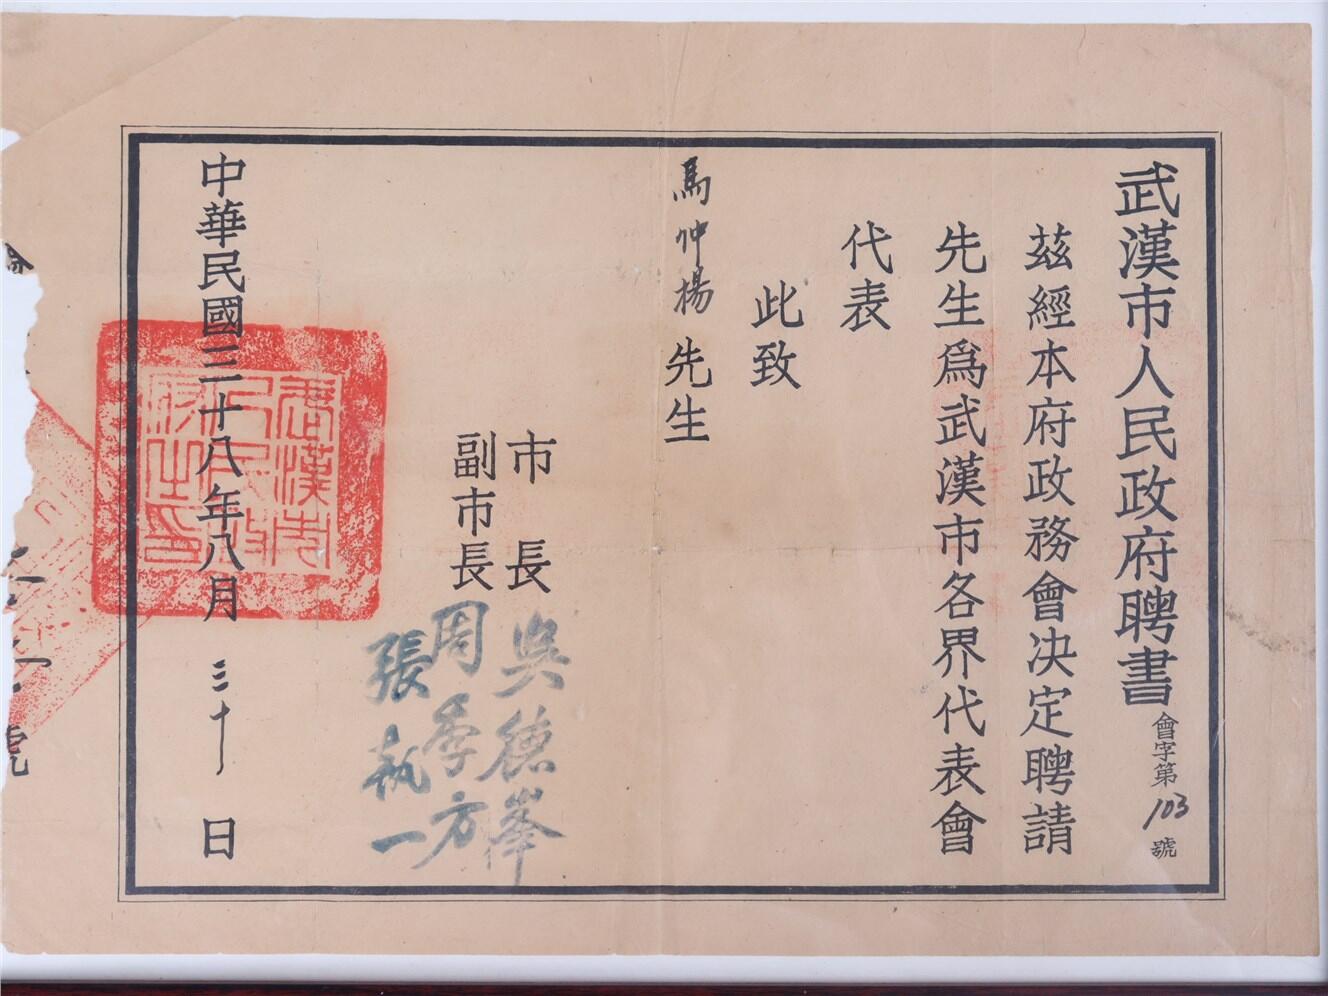 武漢市人民政府聘書 會字第103號
茲經本府政務會決定聘請
先生爲武漢市各界代表會
代表
此致
馬仲揚先生
市長 吳德峯
副市長 周季方
張執一
中華民國三十八年八月三十日
武漢市
人民政
府之印
號